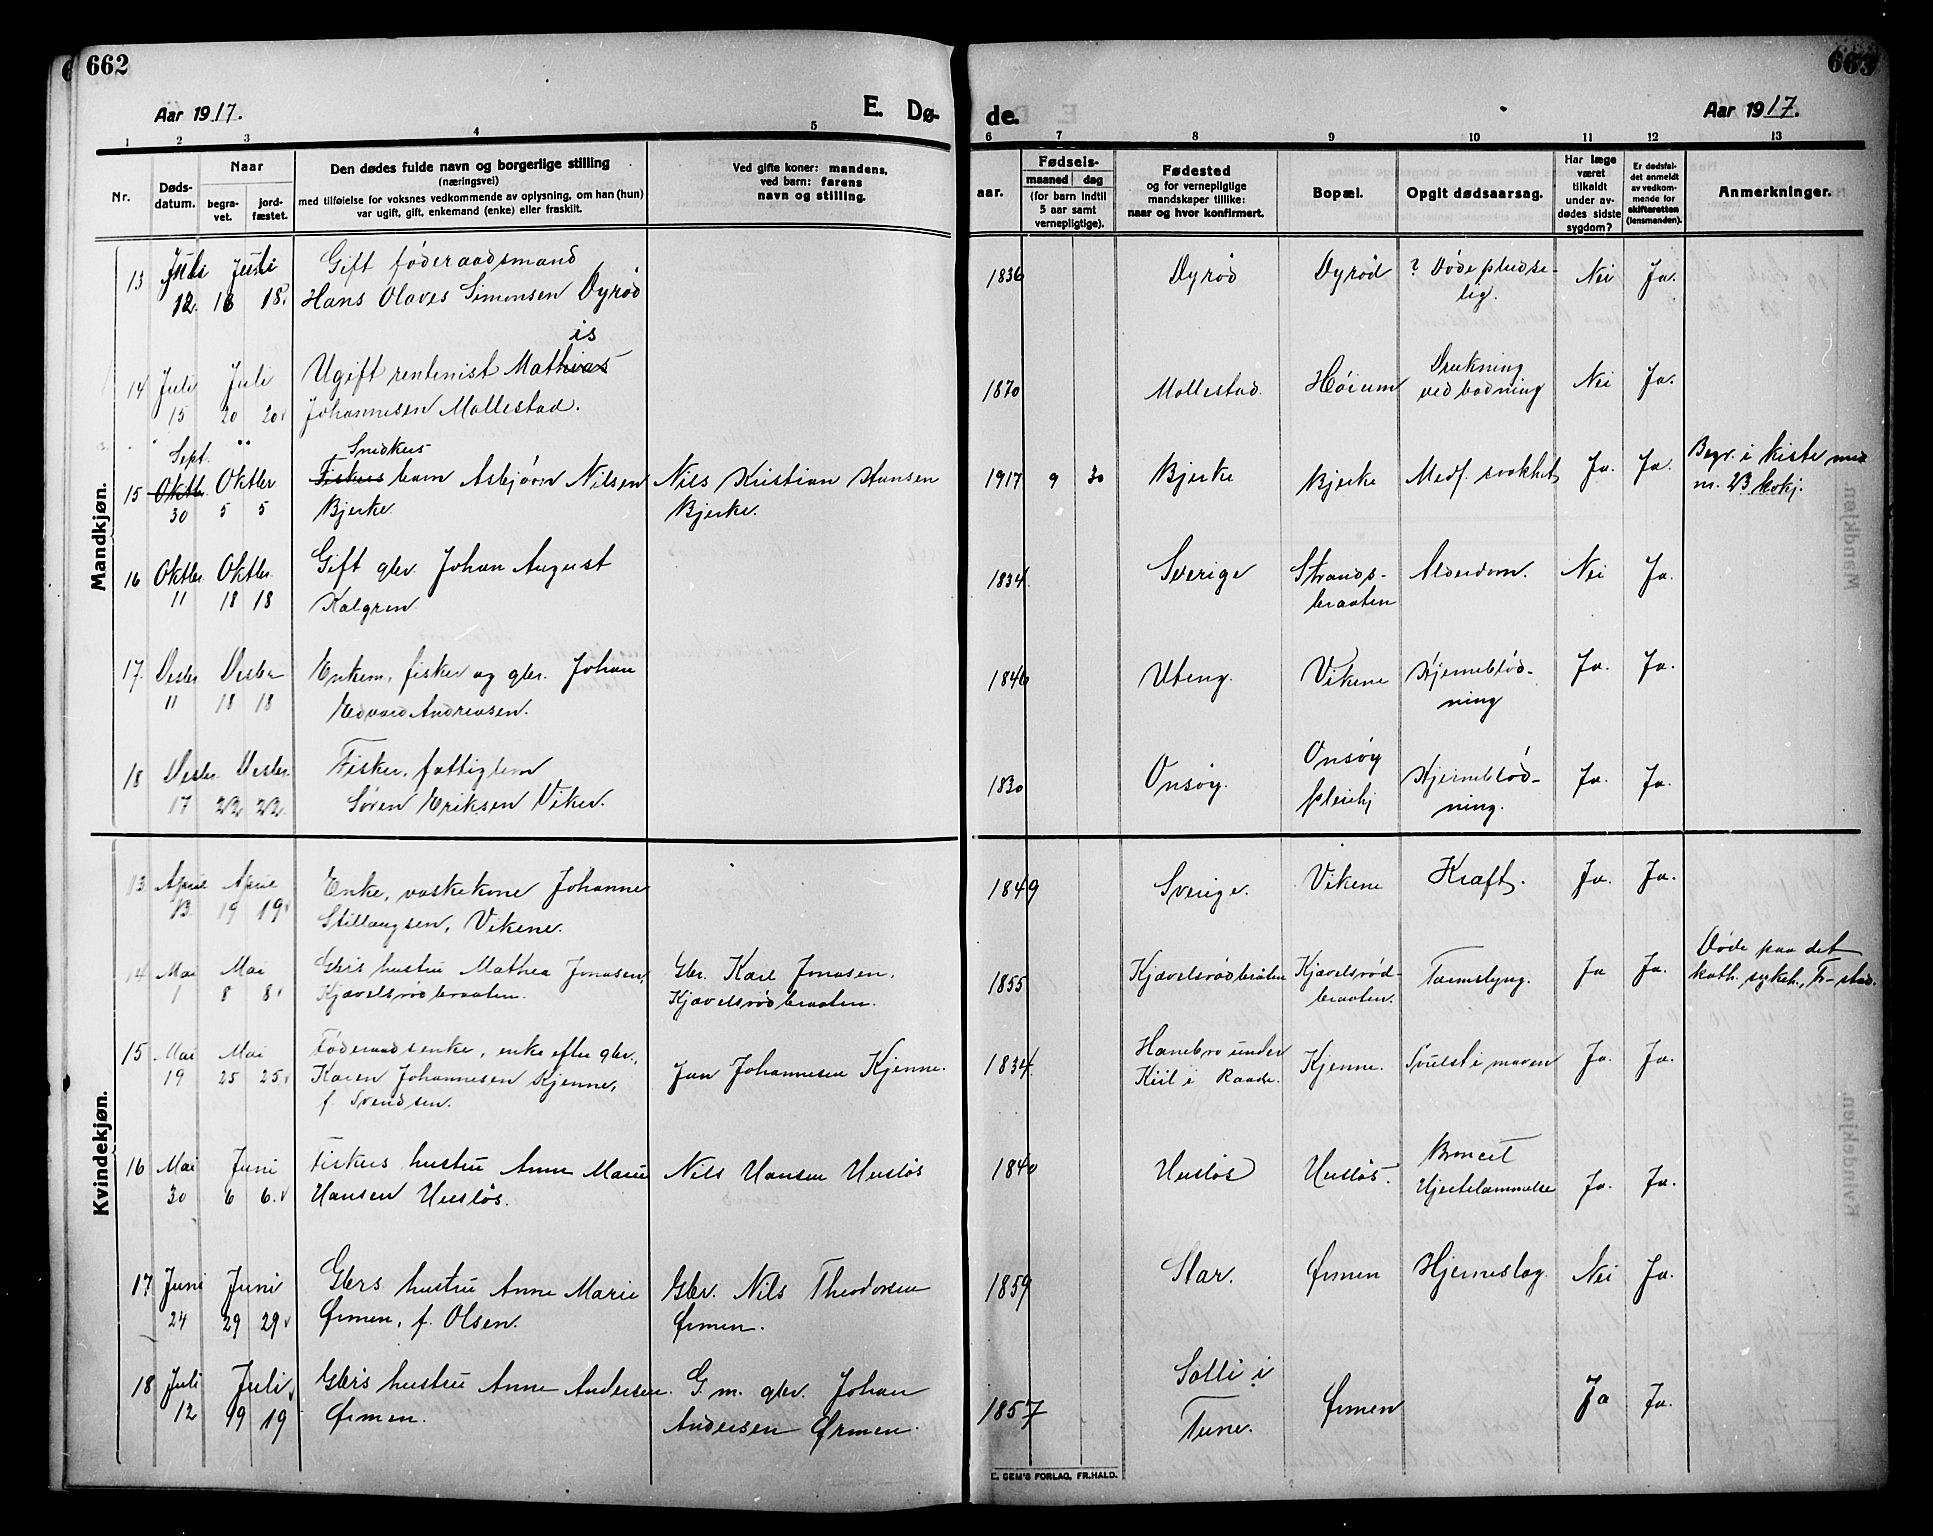 662
663
Aar 1917.
E. Dø-
de.
Aar 1917.
1 2 3 4 5 6 7 8 9 10 11 12 13
Nr.
Døds-
datum.
Naar
begra-
vet.
jord-
fæstet.
Den dødes fulde navn og borgerlige stilling
(næringsvei)
med tilføielse for voksnes vedkommende av oplysning, om han (hun)
var ugift, gift, enkemand (enke) eller fraskilt.
Ved gifte koner: mandens,
ved barn: farens
navn og stilling.
aar.
Fødsels-
maaned dag
(for barn indtil
5 aar samt
vernepligtige).
Fødested
og for vernepligtige
mandskaper tillike:
naar og hvor konfirmert.
Bopæl.
Opgit dødsaarsag.
Har læge
været
tilkaldt
under av-
dødes sidste
sygdom?
Er dødsfal-
det anmeldt
av vedkom-
mende for
skifteretten
(lensmanden).
Anmerkninger.
Mandkjøn.
13 Juli Juli Gift føderaadsmand 1836 Dyrød Dyrød ? Døde pludse- Nei Ja.
12. 18 18. Hans Olaves Simonsen Dyrød lig.
is
14 Juli Juli Ugift rentenist Mathias 1870 Mollestad Høium Drukning Nei Ja.
15 20 20 Johannesen Mollestad. ved badning
Sept. Snidkers
15 Oktbr. Oktbr Fiskers barn Asbjørn Nilsen Nils Kristian Hansen 1917 9 30 Bjerke Bjerke Medf. svakhet Ja. Ja. Begr. i kiste med
30 5 5 Bjerke. Bjerke. nr. 23 kvkj.
16 Oktbr. Oktbr. Gift gbr. Johan August 1834 Sverige Strands- Alderdom. Nei Ja.
11 18 18 Kalgren braaten
17. Desbr Desbr Enkem, fisker og gbr. Johan 1846 Uteng. Vikene Hjerneblød- Ja. Ja.
11 18 18 Edvard Andreasen. ning
18 Desbr. Desbr. Fisker, fattiglem 1830 Onsøy. Onsøy Hjerneblød- Ja. Ja.
17 22 22. Søren Eriksen Viker. pleiehj ning.
Kvindekjøn.
13 April April Enke, vaskekone Johanne 1849 Sverige. Vikene Kræft. Ja. Ja.
13. 19 19 Stillaugsen, Vikene.
14 Mai Mai Gbrs hustru Mathea Jonasen, Gbr. Karl Jonasen, 1855 Kjævelsrødbraaten Kjævelsrød- Tarmslyng. Ja Ja. Døde paa det
1 8 8 Kjævelsrødbraaten. Kjævelsrødbraaten. braaten. kath. sykeh., Fr-stad.
15 Mai Mai Føderaadsenke, enke efter gbr., Jan Johannesen Kjenne. 1834 Hanebro under Kjenne. Svulst i maven Ja. Ja.
19 25 25 Karen Johannesen Kjenne, Kiil i Raade.
f. Svendsen.
16 Mai Juni Fiskers hustru Anne Marie Nils Hansen Husløs 1840 Husløs Husløs. Broncit Ja. Ja.
30 6 6. Hansen Husløs. Hjertelammelse
17 Juni Juni Gbrs hustru Anne Marie Gbr. Nils Theodorsen 1859 Star. Ørmen Hjerneslag Nei Ja.
24 29 29 Ørmen, f. Olsen. Ørmen.
18 Juli Juli Gbrs hustru Anne Andersen G. m. gbr. Johan 1857 Solli i Ørmen Ja Ja.
12 19 19 Ørmen. Andersen Ørmen. Tune.
E. SEM'S FORLAG, FR.HALD.